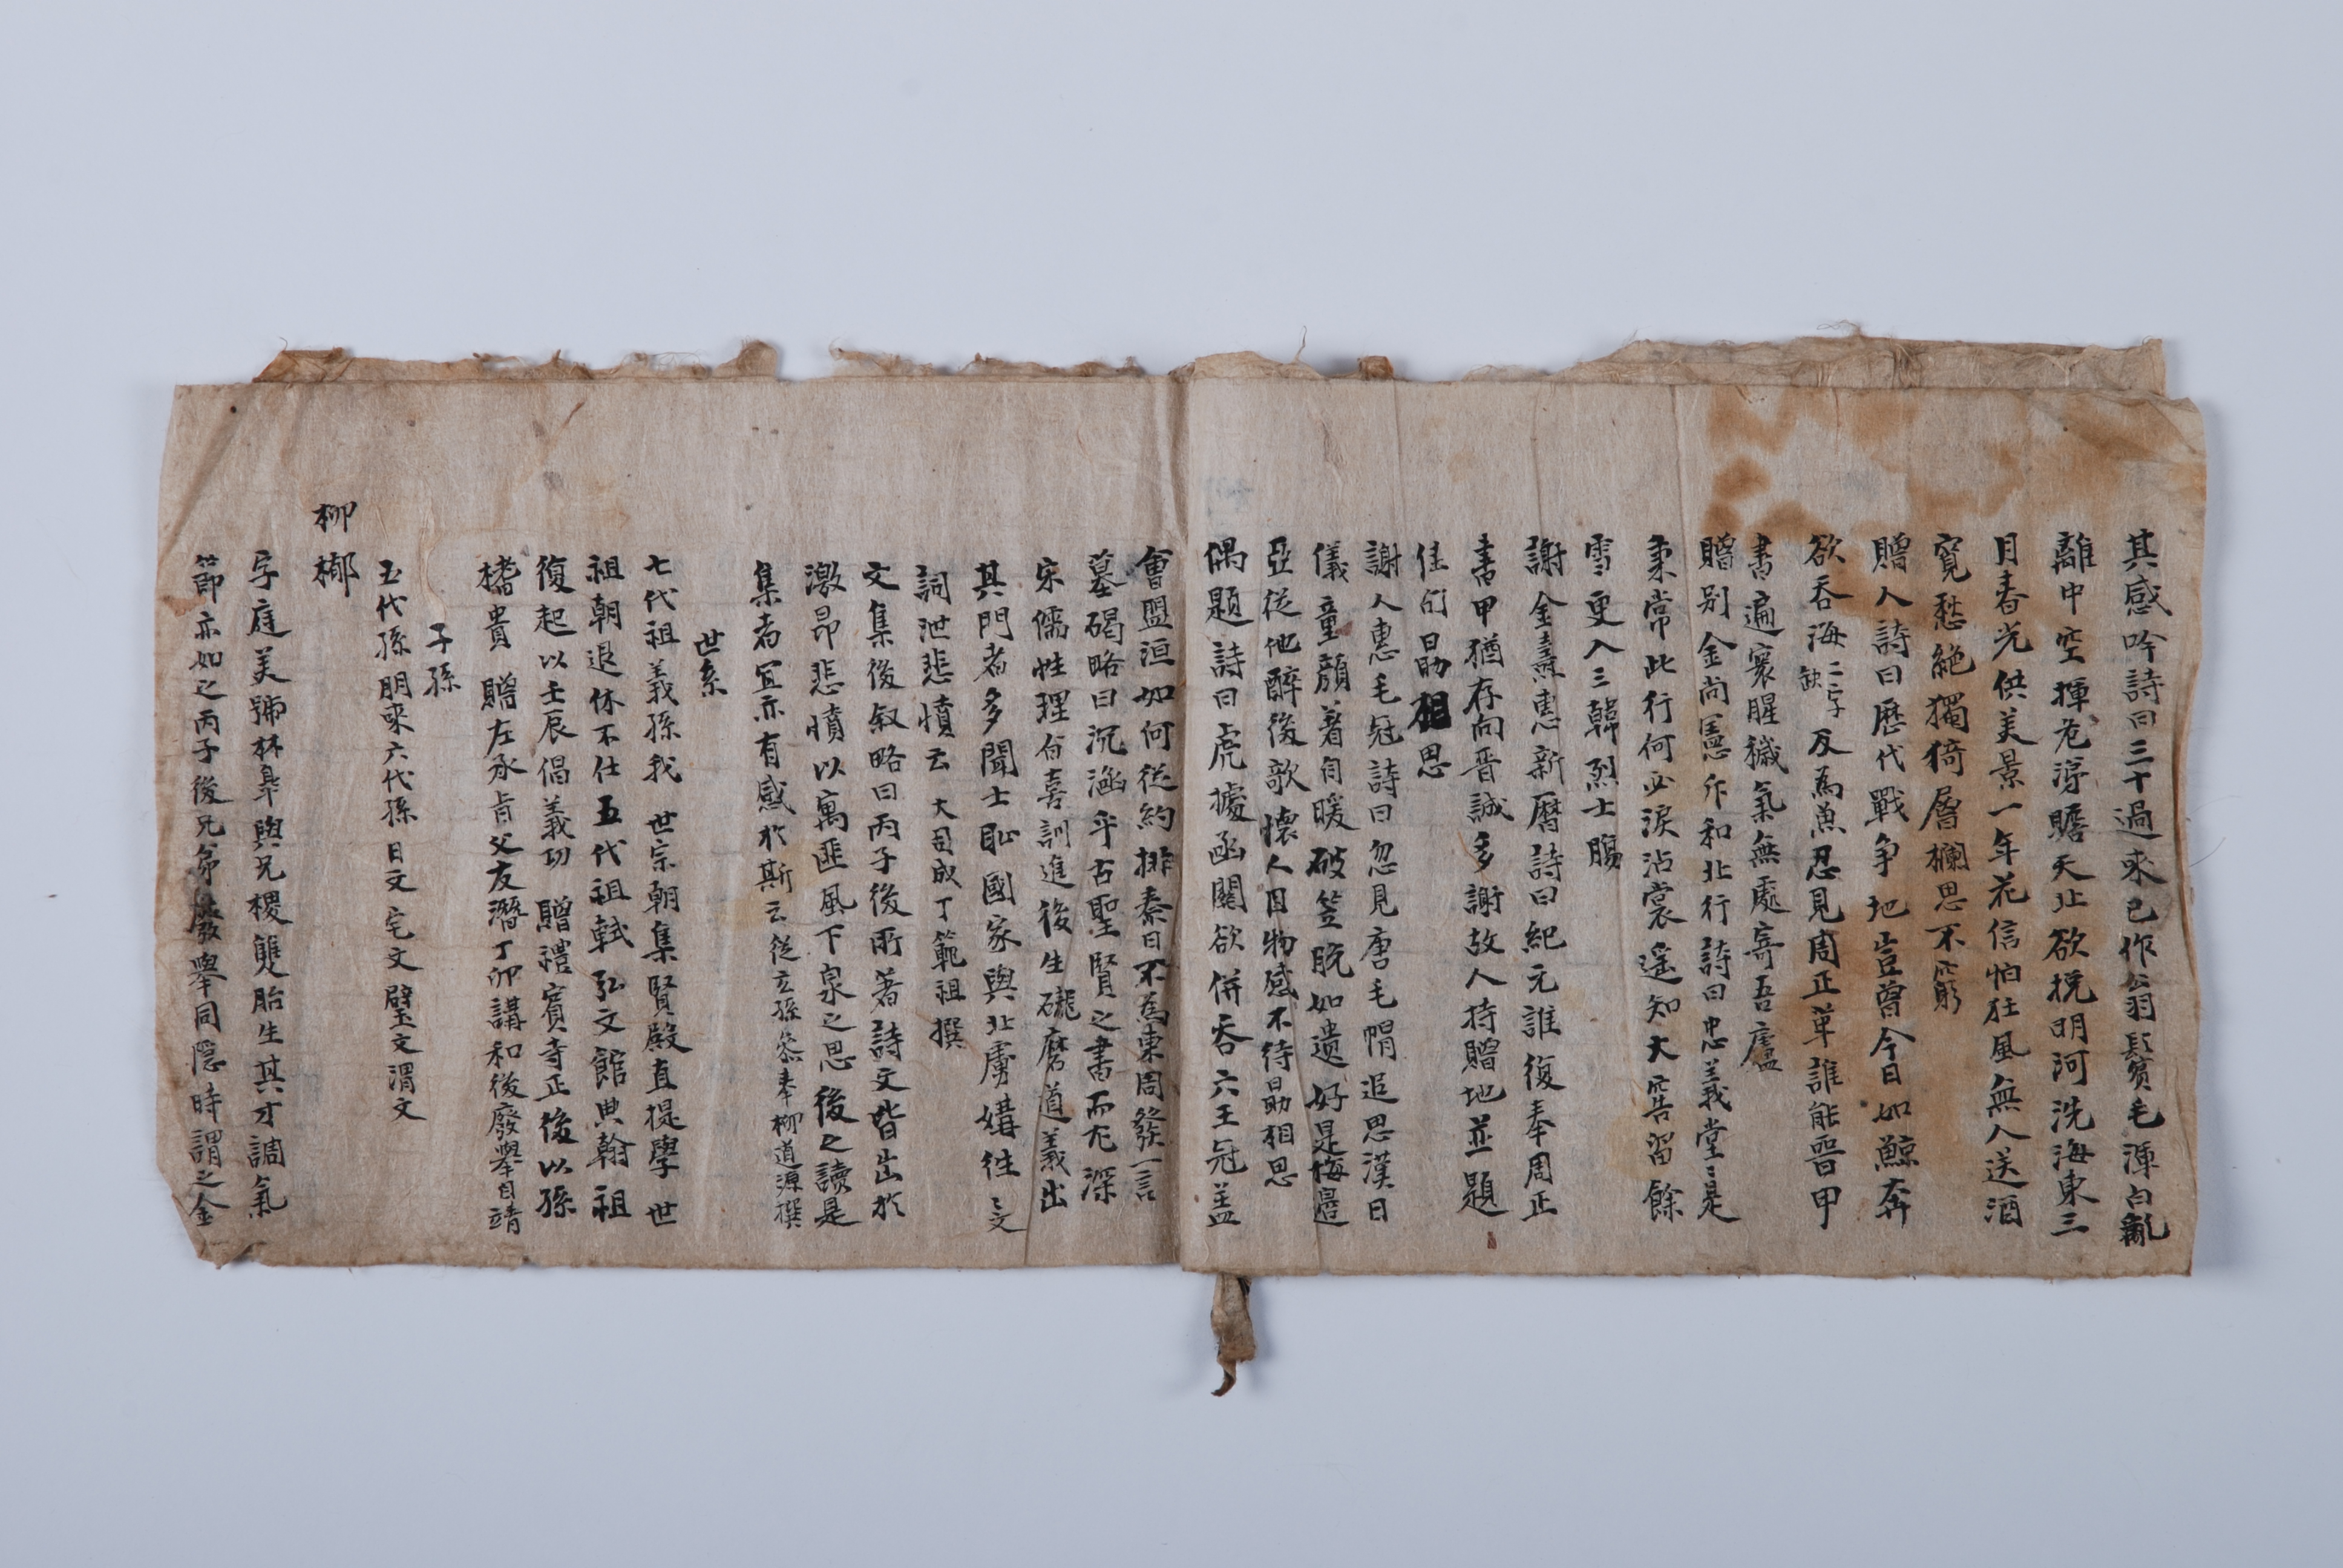 其感吟詩曰三十過來已作翁鬂毛渾白亂
離中空揮危淂瞻天北欲挽明河洗海東三
月春光供美景一年花信怕狂風無人送酒
寬愁絶獨猗層欄思不窮
贈人詩曰歷代戰爭地豈曾今日如鯨奔
欲吞海二字缺反爲魚忍見周正革誰能晉甲
書遍寰腥穢氣無處寄吾廬
贈別金尚憲斥和北行詩曰忠義堂堂是
秉常此行何必淚沾裳遥知大窖留餘
雪更入三韓烈士膓
謝金壽惠新曆詩曰紀元誰復奉周正
書甲猶存向晋誠多謝故人持贈地並題
佳句曷相思
謝人惠毛冠詩曰忽見唐毛帽追思漢日
儀童顔着自暖破笠脫如遗好是海邉
亞從他醉後歌懷人因物感不待曷相思
偶題詩曰虎據函關欲併吞六王冠盖
會盟洹如何從約排秦日不爲東周發一言
墓碣略曰沉涵乎古聖賢之書而尤深
宋儒性理自喜訓進後生礲磨道義出
其門者多聞士耻國家與北虜媾往〻文
詞泄悲憤云 大司成丁範祖撰
文集後叙略曰丙子後所著詩文皆出於
激昂悲憤以寓匪風下泉之思後之讀是
集者宜亦有感於斯云從玄孫參奉柳道源撰
世系
七代祖義孫我 世宗朝集賢殿直提學 世
祖朝退休不仕五代祖軾弘文館典翰祖
復起以壬辰倡義功 贈禮賓寺正後以孫
櫧貴 贈左承旨父友潛丁卯講和後廢擧自靖
子孫
五代孫朋來六代孫日文宅文璧文渭文
柳㮋
字庭美號林臯與兄稷雙胎生其才調氣
節亦如之丙子後兄弟廢擧同隱時謂之金